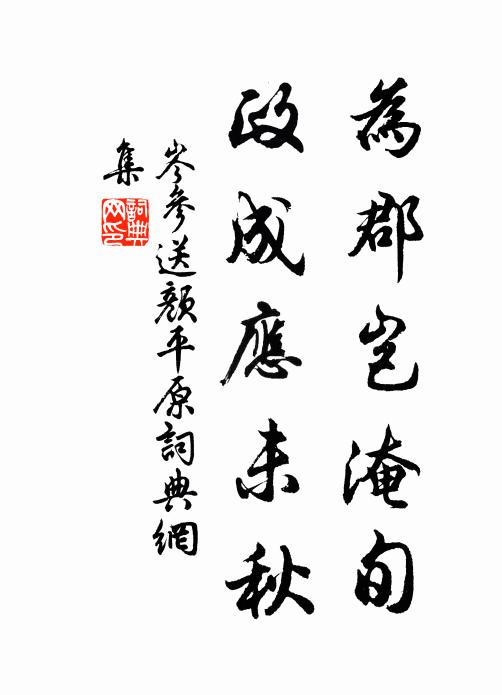 為郡豈淹旬
政成應未秋
岑參送顏平原詞典網
集
詞典
网印